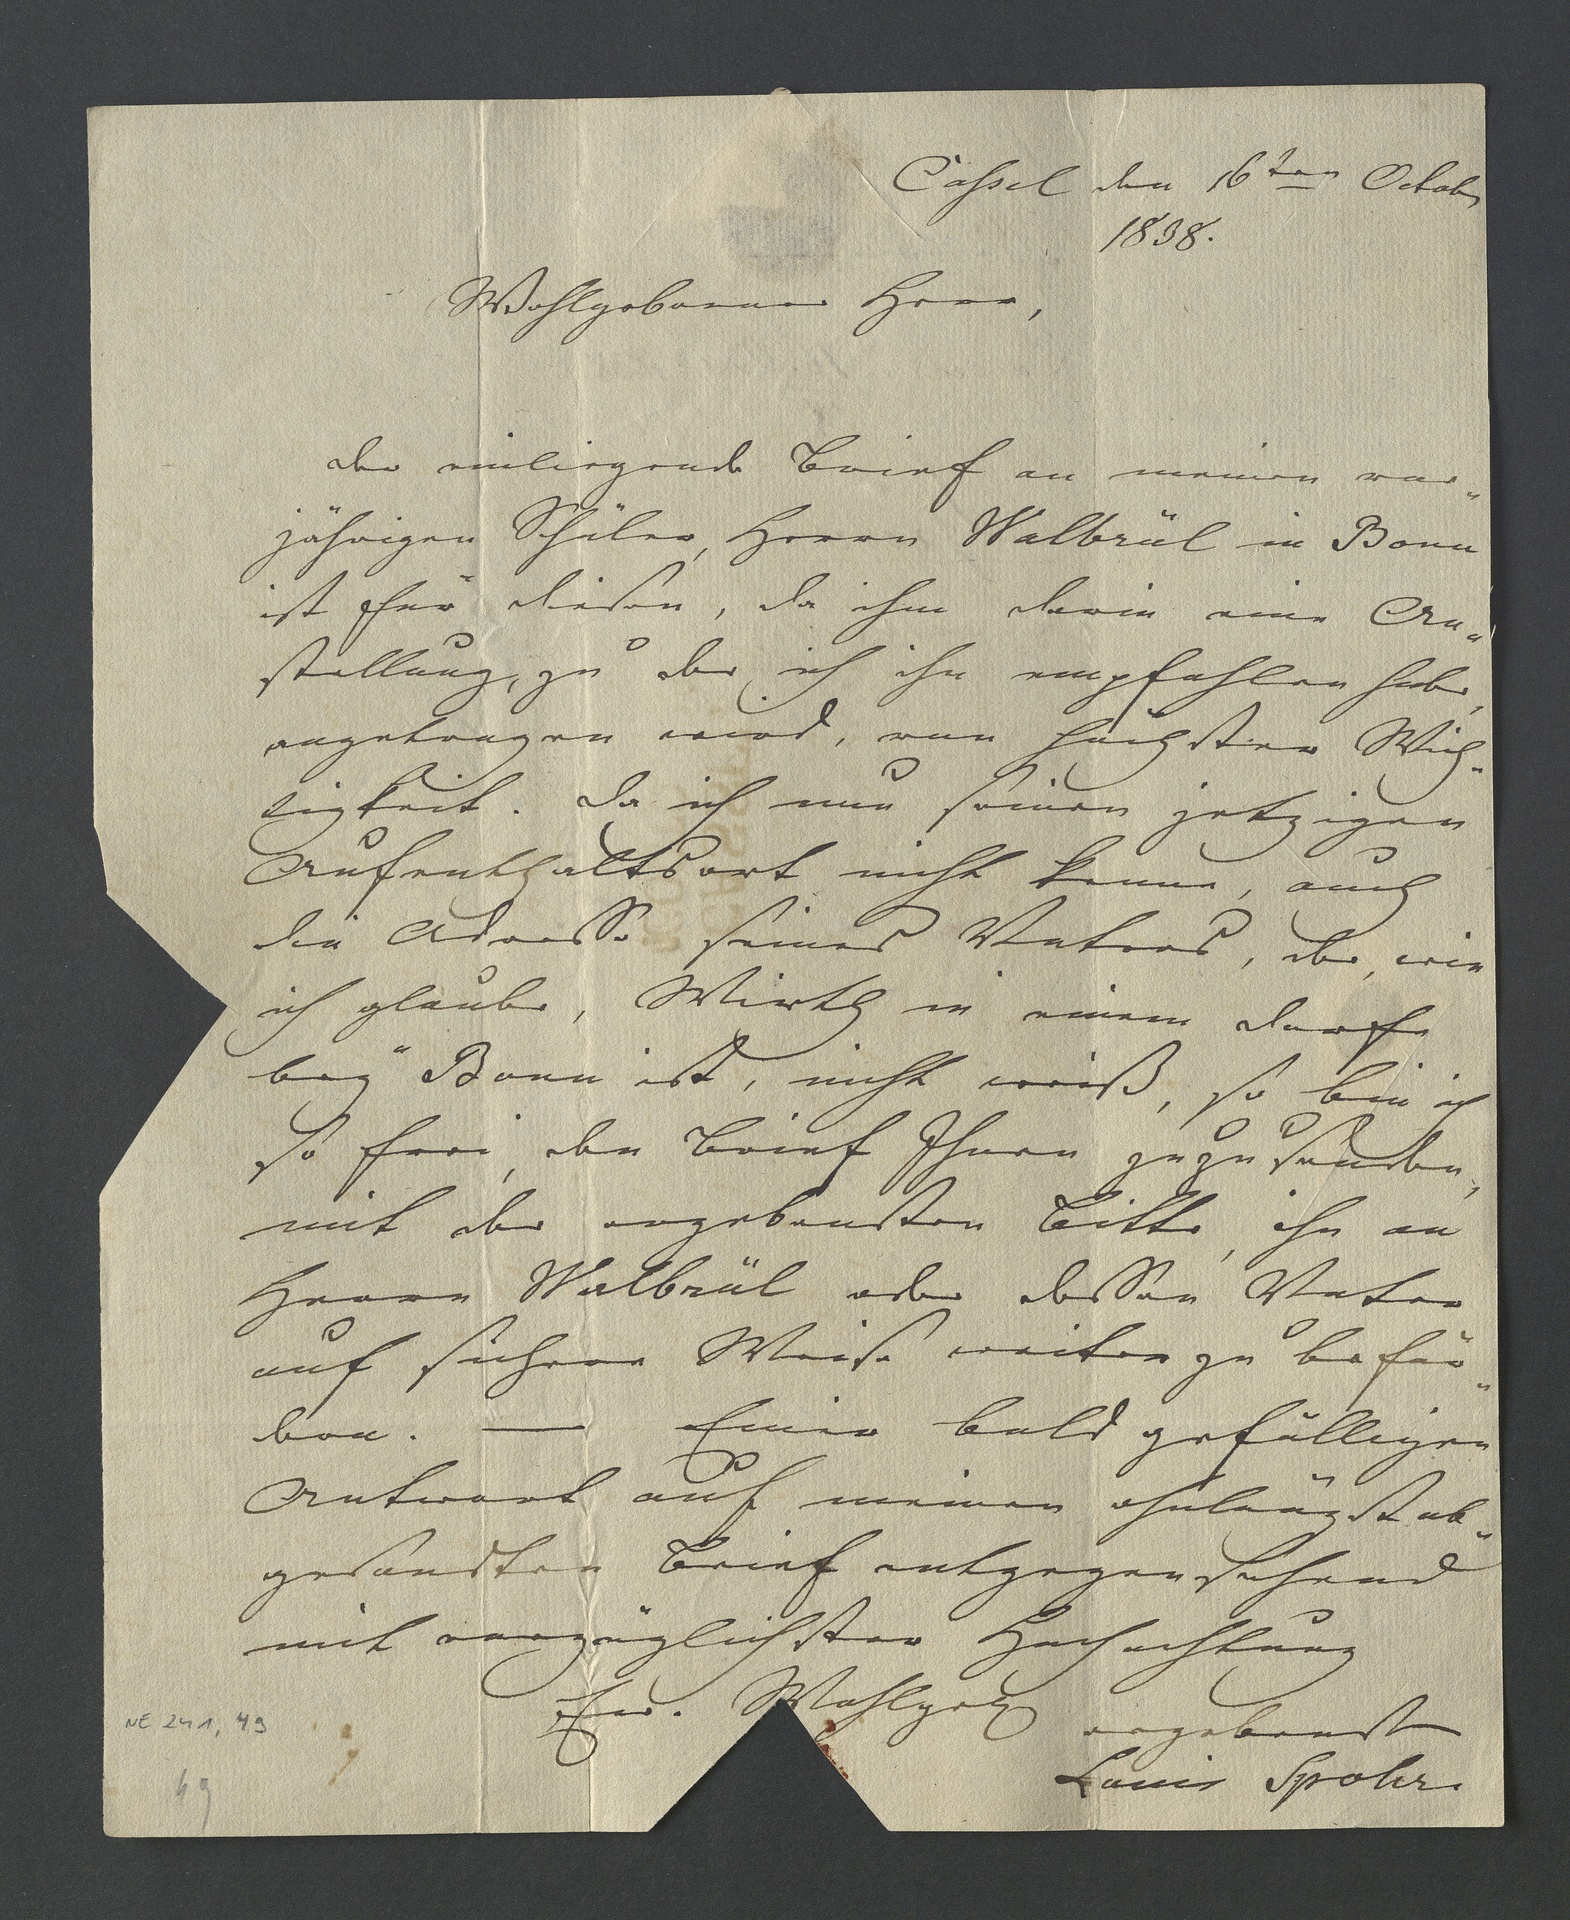 Cassel den 16ten Octob
1838.
Wohlgeborner Herr,
Der einliegende Brief an meinen vor-
jährigen Schüler, Herrn Walbrül in Bonn
ist für diesen, da ihm darin eine An-
stellung, zu der ich ihn empfohlen habe,
angetragen wird, von höchster Wich-
tigkeit. Da ich nun seinen jetzigen
Aufenthaltsort nicht kenne, auch
die Adresse seines Vaters, der, wie
ich glaube, Wirth in einem Dorfe
bey Bonn ist, nicht weiß, so bin ich
so frei, den Brief Ihnen zuzusenden,
mit der ergebensten Bitte, ihn an
Herrn Walbrül oder dessen Vater
auf sichere Weise weiter zu beför-
dern. — Einer bald gefälligen
Antwort auf meinen ohnlängst ab-
gesandten Brief entgegensehend
mit vorzüglichster Hochachtung
Ew. Wohlgeb
ergebenster
Louis Spohr.
NE 241, 49
49